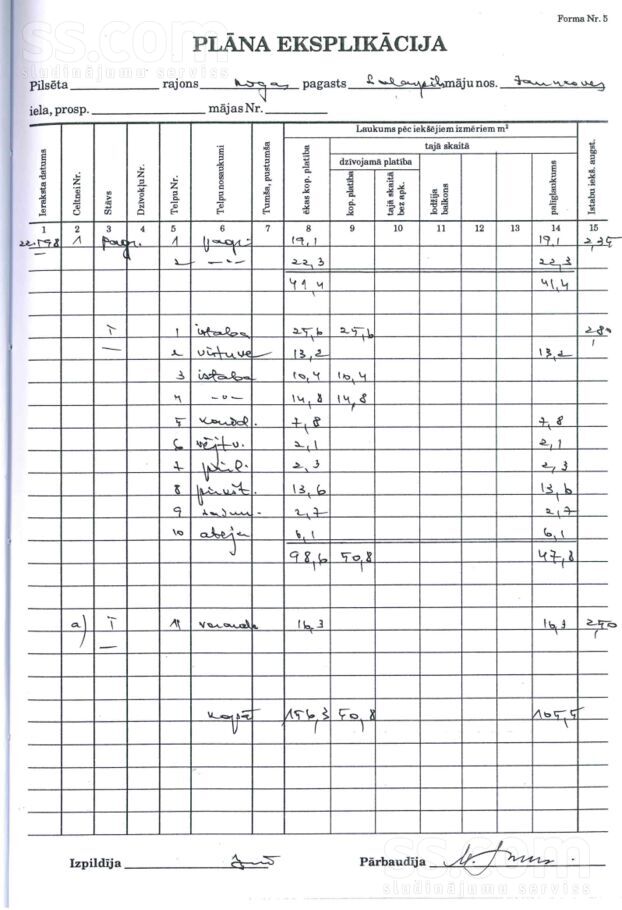 Forma Nr. 5
ss.com
sludinājumu serviss
PLĀNA EKSPLIKĀCIJA
Pilsēta rajons Rīgas pagasts Salaspils māju nos.
iela, prosp. mājas Nr.
Laukums pēc iekšējiem izmēriem m²
tajā skaitā
dzīvojamā platība
Ieraksta datums Celtnei Nr. Stāvs Dzīvokļu Nr. Telpu Nr. Telpu nosaukumi Tumša, pustumša ēkas kop. platība kop. platība tajā skaitā bez apk. lodžija balkons palīglaukums Istabu iekš. augst.
1 2 3 4 5 6 7 8 9 10 11 12 13 14 15
1 pagr. 1 pagr. 19,1 19,1 2,35
2 -"- 22,3 22,3
41,4 41,4
I 1 istaba 25,6 25,6
2 virtuve 13,2 13,2
3 istaba 10,4 10,4
4 -"- 14,8 14,8
5 7,8 7,8
6 vējtv. 2,1 2,1
7 2,3 2,3
8 13,6 13,6
9 2,7 2,7
10 ateja 6,1 6,1
98,6 50,8 47,8
a) I 11 veranda 16,3 16,3 2,50
kopā 156,3 50,8 105,5
Izpildīja Pārbaudīja
ss.com
sludinājumu serviss